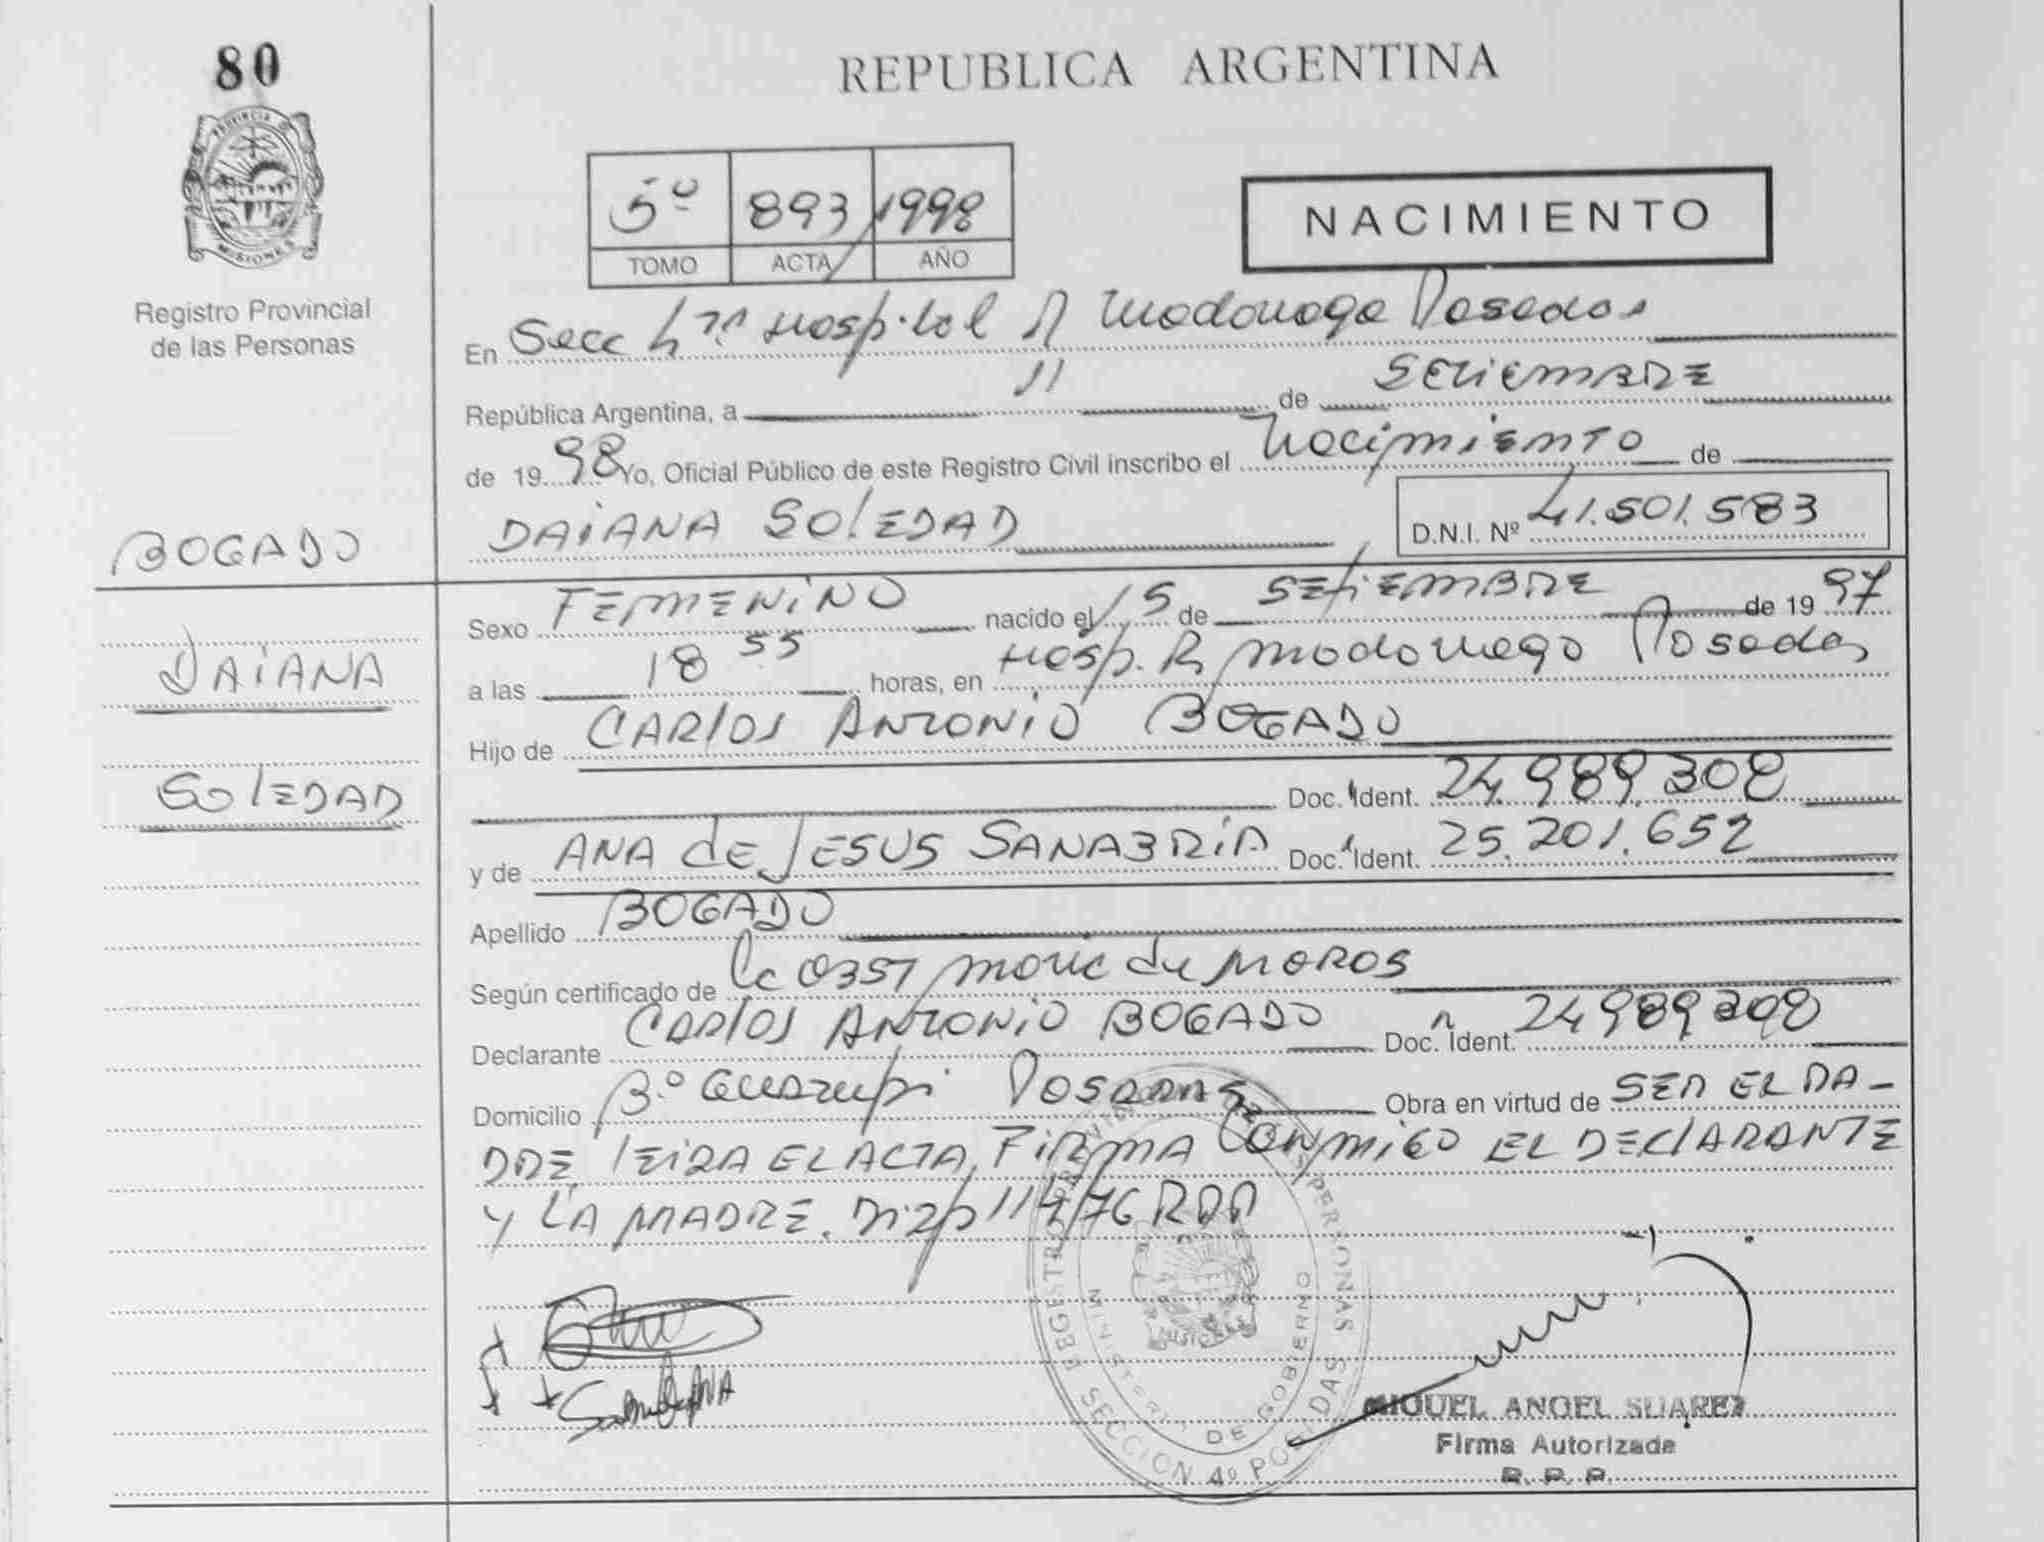 80
REPUBLICA ARGENTINA
PROVINCIA DE
MISIONES
Registro Provincial
de las Personas
5º 893 1998
TOMO ACTA AÑO
NACIMIENTO
En Secc 4ta Hospital R Madariaga Posadas
República Argentina, a 11 de SETIEMBRE
de 1998 Yo, Oficial Público de este Registro Civil inscribo el Nacimiento de
BOGADO
DAIANA SOLEDAD D.N.I. Nº 41.501.583
DAIANA
SOLEDAD
Sexo FEMENINO nacido el 15 de SETIEMBRE de 1997
a las 18 55 horas, en Hosp. R Madariaga Posadas
Hijo de CARLOS ANTONIO BOGADO
Doc. Ident. 24.989.308
y de ANA de JESUS SANABRIA Doc. Ident. 25.201.652
Apellido BOGADO
Según certificado de
Declarante CARLOS ANTONIO BOGADO Doc. Ident. 24989308
Domicilio Bº Posadas Obra en virtud de SER EL PA-
DRE, leida EL ACTA, FIRMA CONMIGO EL DEClARANTE
Y LA MADRE.
REGISTRO PERSONAS
MINISTERIO DE GOBIERNO
MISIONES
SECCION 4º POSADAS
MIGUEL ANGEL SUAREZ
Firma Autorizada
R. P. P.